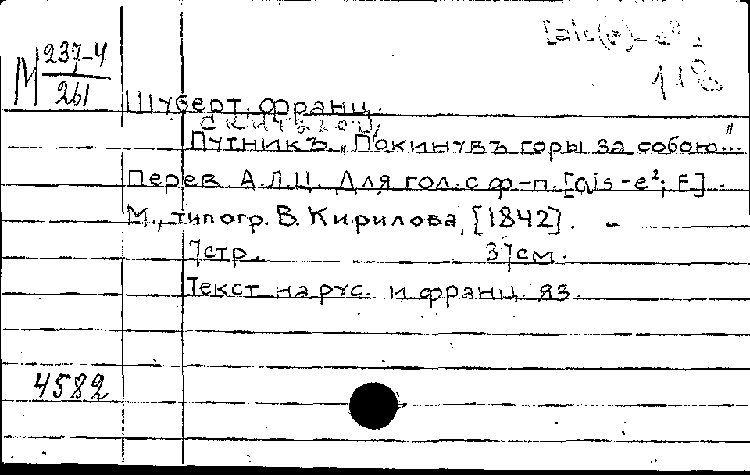 [ais(?)-e² ;
118
М 237-4
261
Шуберт, Франц.
Скиталец,
Путникъ. „Покинувъ горы за собою..."
Перев. А.Л.Ц. Для гол. с ф.-п. [ais-e²; E].
М., типогр. В. Кирилова, [1842]. -
7стр. 37см.
Текст на рус. и франц. яз.
4582